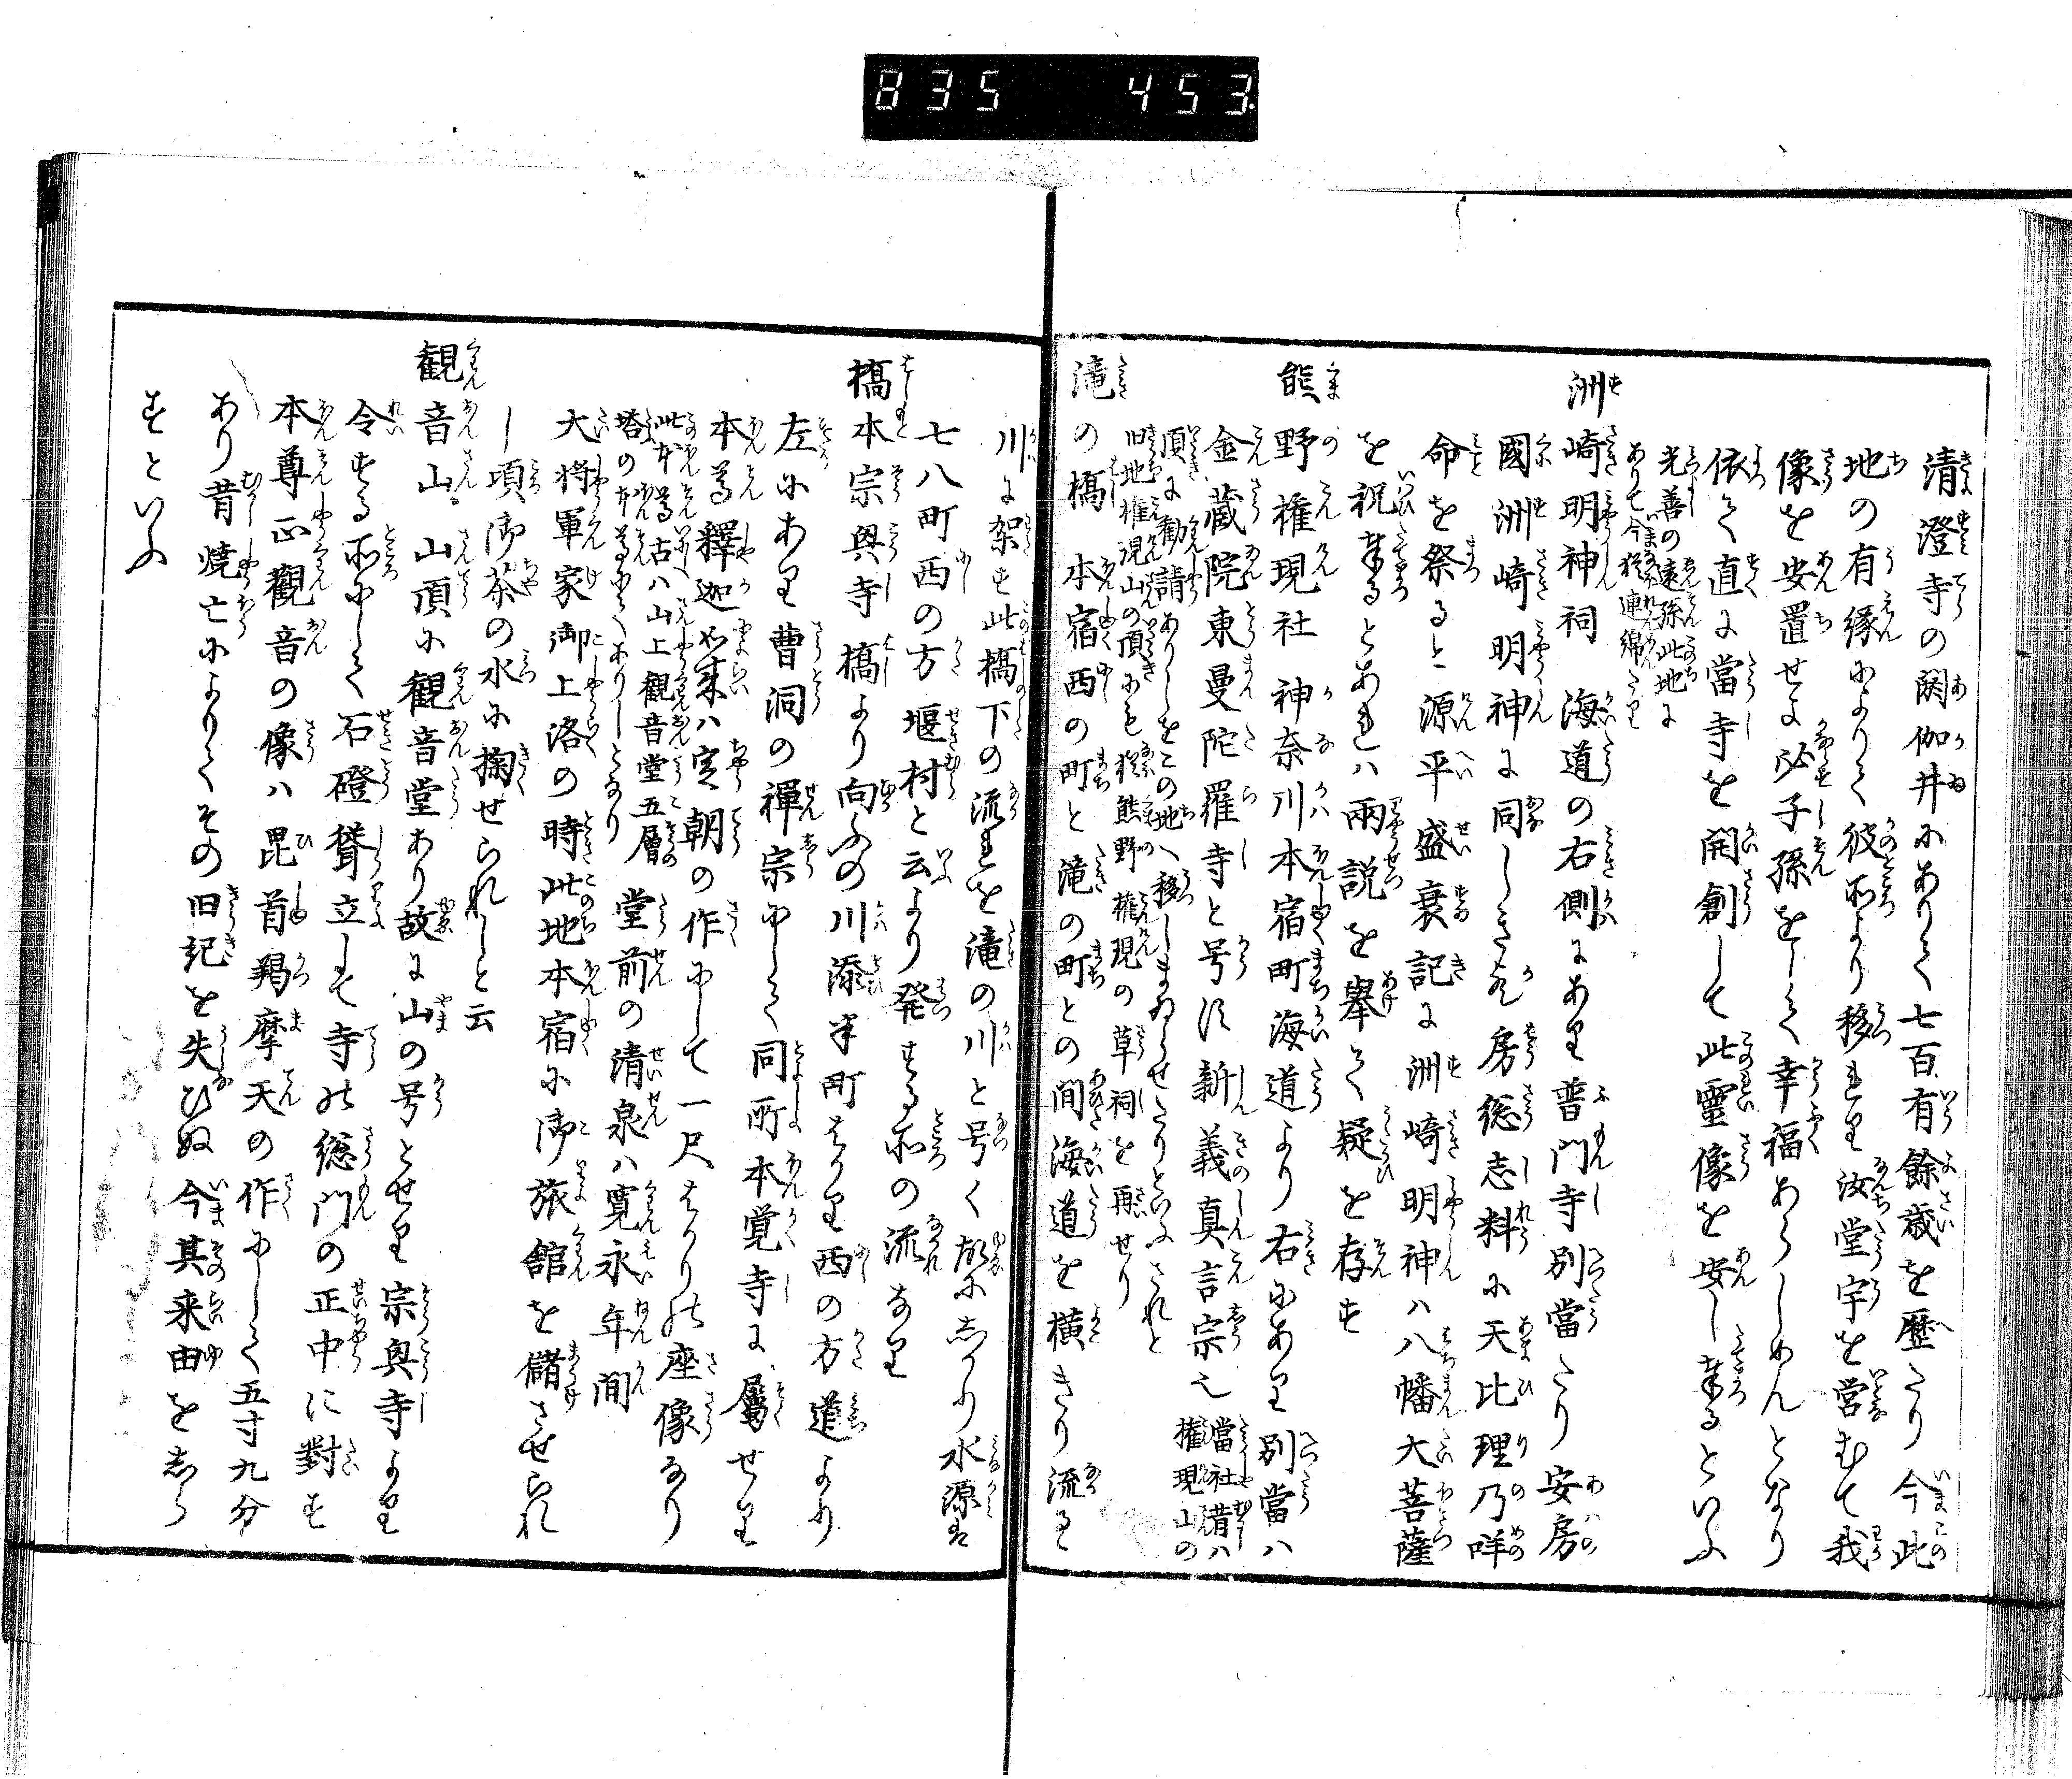 835 453
清澄寺の閼伽井にありて七百有餘歳を歴たり今此
地の有縁によりて彼所より移れり汝堂宇を営むて我
像を安置せよ必子孫をして幸福あらしめんとなり
依て直に當寺を開創して此霊像を安し奉るといふ
光善の遠孫此地に
ありて今猶連綿たり
洲崎明神祠 海道の右側にあり普門寺別當たり安房
國洲崎明神に同しき歟房総志料に天比理乃咩
命を祭ると源平盛衰記に洲崎明神ハ八幡大菩薩
を祝奉るとあれハ兩説を擧て疑を存す
熊野権現社 神奈川本宿町海道より右にあり別當ハ
金蔵院東曼陀羅寺と号す新義真言宗也 當社昔ハ
権現山の
頂に勧請ありしをこの地へ移しまゐらせたりといふされと
旧地権現山の頂にも猶熊野権現の草祠を再せり
滝の橋 本宿西の町と滝の町との間海道を横きり流るゝ
川に架す此橋下の流れを滝の川と号く故にしかり水源は
七八町西の方堰村と云より発する所の流なり
橋本宗興寺 橋より向ふの川添半町はかり西の方道より
左にあり曹洞の禅宗にして同所本覚寺に属せり
本尊釋迦如来ハ定朝の作にして一尺はかりの座像なり
此本尊古ハ山上観音堂五層
塔の本尊にてありしとなり
堂前の清泉ハ寛永年間
大将軍家御上洛の時此地本宿に御旅舘を儲させられ
し頃御茶の水に掬せられしと云
観音山 山頂に観音堂あり故に山の号とせり宗興寺より
令する所にして石磴聳立して寺の総門の正中に對す
本尊正觀音の像ハ毘首羯摩天の作にして五寸九分
あり昔焼亡によりてその旧記を失ひぬ今其来由をしら
すといふ